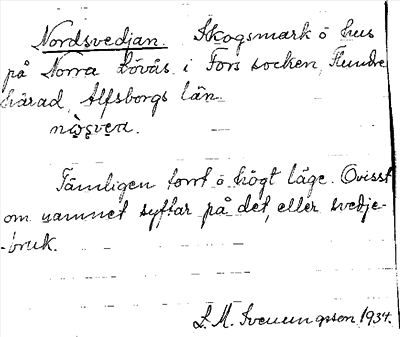 Nordsvedjan. Skogsmark o hus
på Norra Bövås i Fors socken, Flundre
härad, Älfsborgs län.
Tämligen torrt o högt läge. Ovisst
om namnet syftar på det, eller svedje-
-bruk.
L. M. Svenungsson 1934.